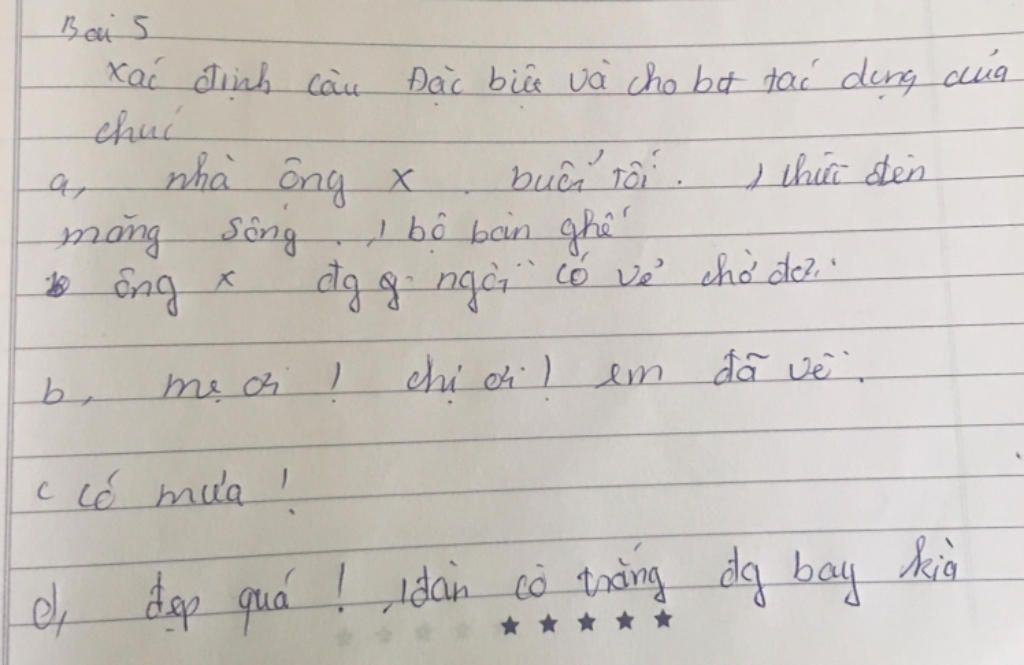 Bài 5
xác định câu Đặc biệt và cho bt tác dụng của
chúc
a, nhà ông x. buổi tối. 1 chiếc đèn
măng sông. 1 bộ bàn ghế
ông x đg ngồi có vẻ chờ đợi.
b, mẹ ơi! chị ơi! em đã về.
c có mưa!
d, đẹp quá! 1 đàn cò trắng đg bay kìa